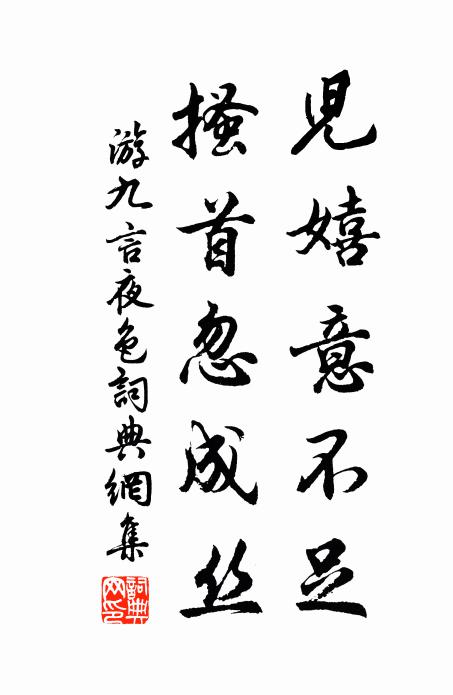 兒嬉意不足
搔首忽成丝
游九言夜色詞典網集
詞典网印